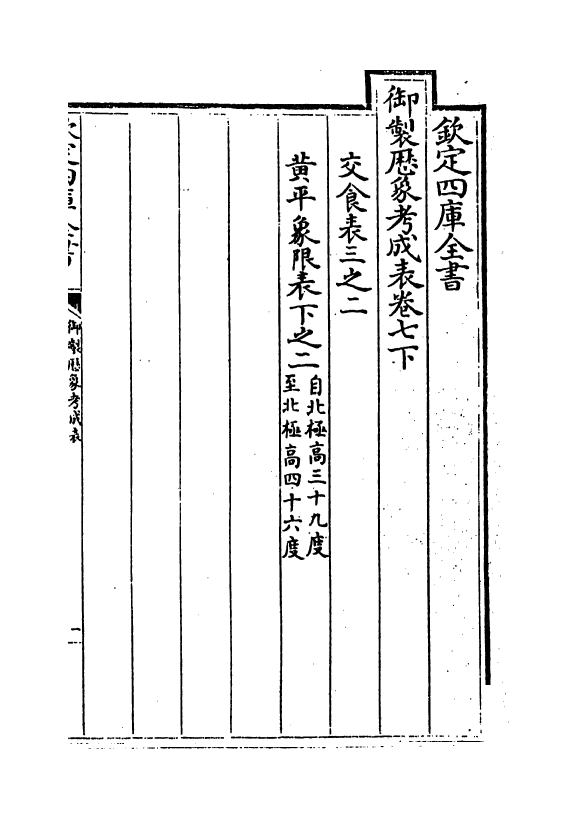 欽定四庫全書
御製厯象考成表卷七下
交食表三之二
黃平象限表下之二
自北極高三十九度
至北極高四十六度
欽定四庫全書
御製厯象考成表
一